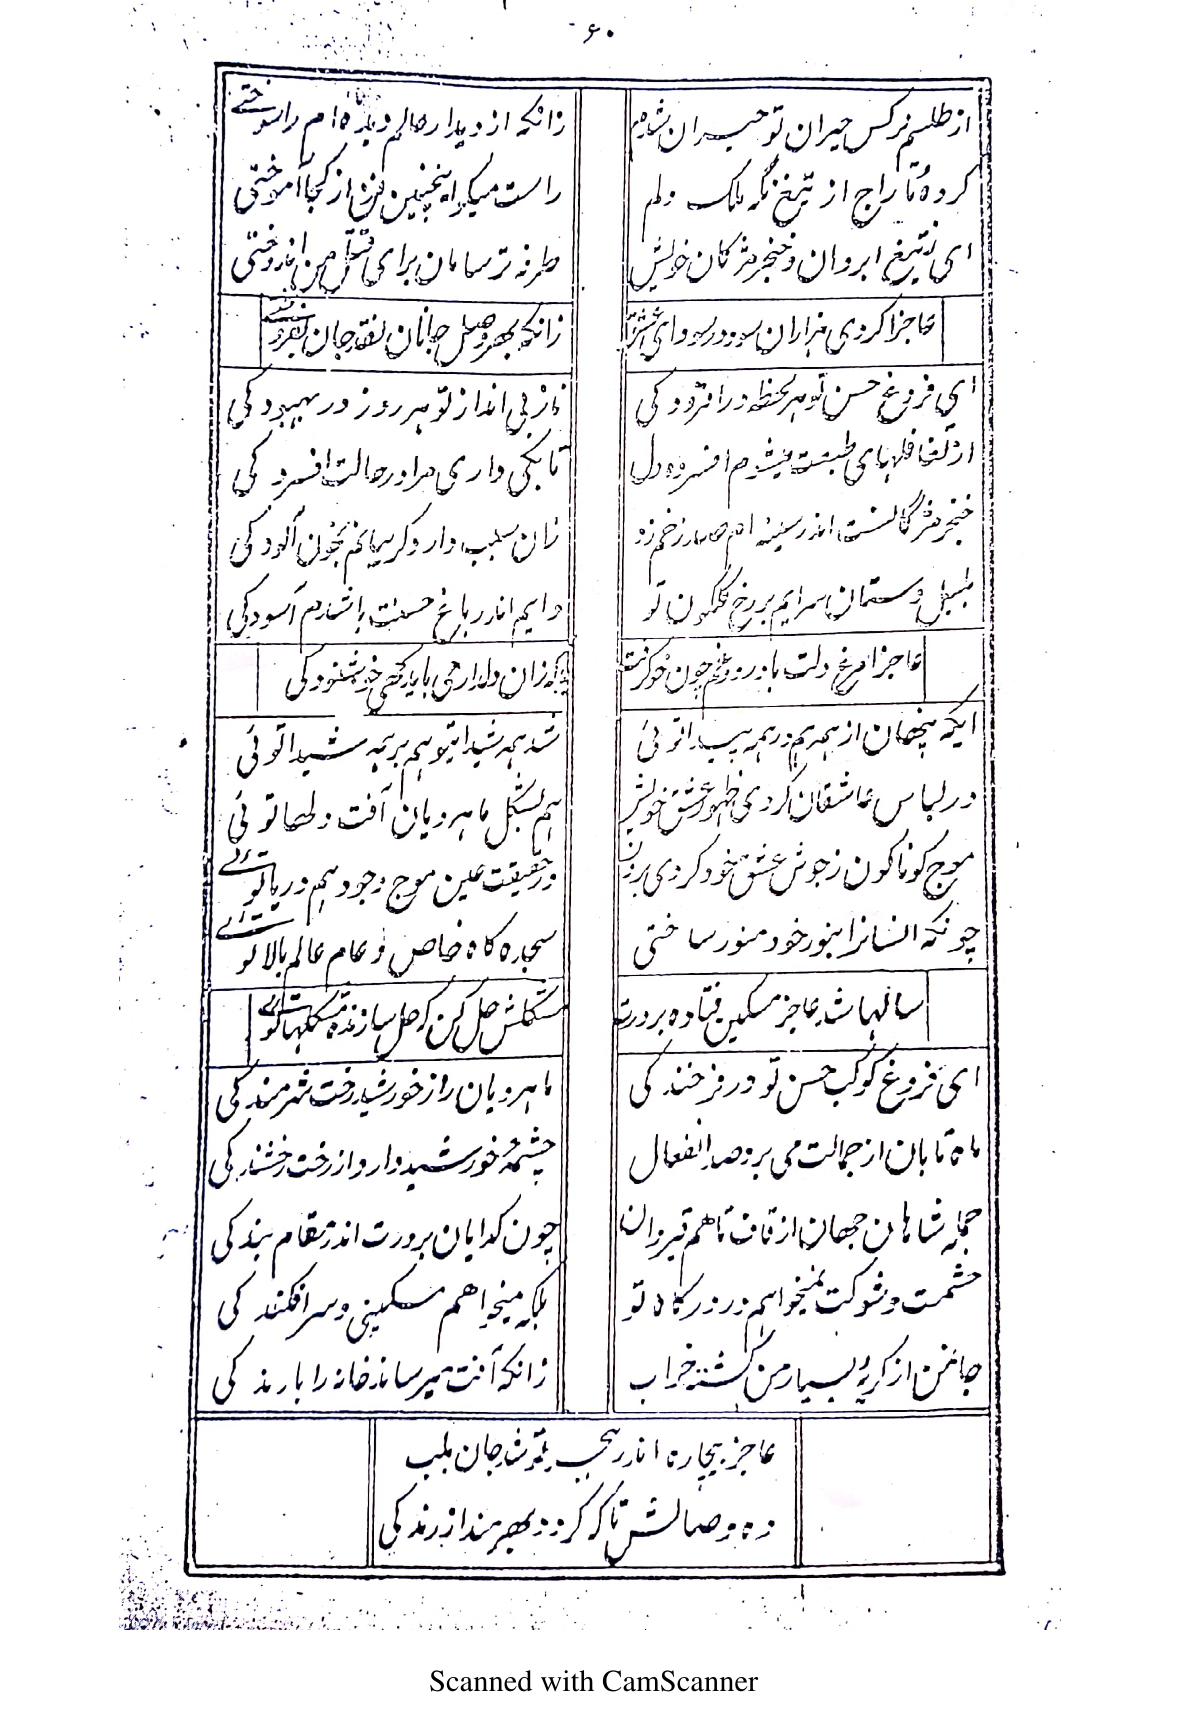 ۶۰
از طلسم نرکس حیران تو حیران شدم
زانکه از دیدار عالم دیده ام را سوختی
کرده تاراج از تیغ نگه ملک دلم
راست میکو اینچنین فن از کجا آموختی
ای ز تیغ ابروان و خنجر مژکان خویش
طرفه تر سامان برای قتل من اندوختی
عاجزا کردی هزاران سود در سودای عشق
زانکه بهر وصل جانان نقد جان بفروختی
ای فروغ حسن تو هر لحظه در افزودکی
ناز بی انداز تو هر روز در بهبودکی
از تغافلهای طبعت میشوم افسرده دل
تا بکی داری مرا در حالت افسردکی
خنجر مژگانت اندر سینه ام صد زخم زد
زان سبب دارد کریبانم بخون آلودکی
بلبل دستان سرایم بر رخ کلکون تو
دایم اندر باغ حسنت باشدم آسودکی
عاجزا مرغ دلت با درد و غم چون خو کرفت
زان دلدار می باید خوشنودکی
ایکه پنهان از همه هم در همه پیدا توئی
شد همه شیدا بتو هم بر همه شیدا توئی
در لباس عاشقان کردی ظهور عشق خویش
هم بشکل ماهرویان آفت دلها توئی
موج کوناکون ز جوش عشق خود کردی برون
در حقیقت عین موج وجود هم دریا توئی
چونکه انسانرا بنور خود منور ساختی
سجده کاه خاص و عام عالم بالا توئی
سالها شد عاجز مسکین فتاده بر درت
مشکلش حل کن که حل سازنده مشکلها توئی
ای فروغ کوکب حسن تو در فرخندکی
ماهرویان را ز خورشید رخت شرمندکی
ماه تابان از جمالت می برد صد انفعال
چشمهٔ خورشید دارد از رخت رخشندکی
جمله شاهان جهان از قاف تا هم قیروان
چون کدایان بر درت اندر مقام بندکی
حشمت و شوکت نمیخواهم در درکاه تو
بلکه میخواهم مسکینی و سرافکندکی
از کریهٔ بسیار من کشته خراب
زانکه آفت میرساند خانه را بارندکی
عاجز بیچاره اندر هجر شد جان بلب
ده وصالش تا که کردد بهره مند از زندکی
Scanned with CamScanner